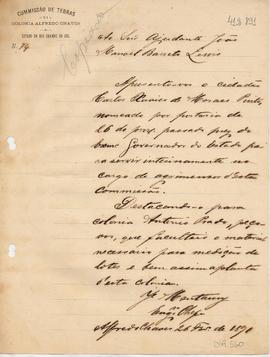 COMMISSÃO DE TERRAS
DA
COLONIA ALFREDO CHAVES
ESTADO DO RIO GRANDE DO SUL
N. 74
Ao Snr Ajudante João
Manoel Barreto Lewis
Apresento-vos o cidadão
Carlos Xavier de Moraes
nomeado por portaria de
26 de passado do
Exmo Governador do Estado para
servir interinamente no
cargo de agrimensor d'esta
Commissão.
Destacando-o para
colonia Antonio Prado, peço-
vos, que faculteis o material
necessario para medição de
lotes e bem assim a planta
d'esta colonia.
J. Montaury
Engº Chefe
Alfredo Chaves 26 1890